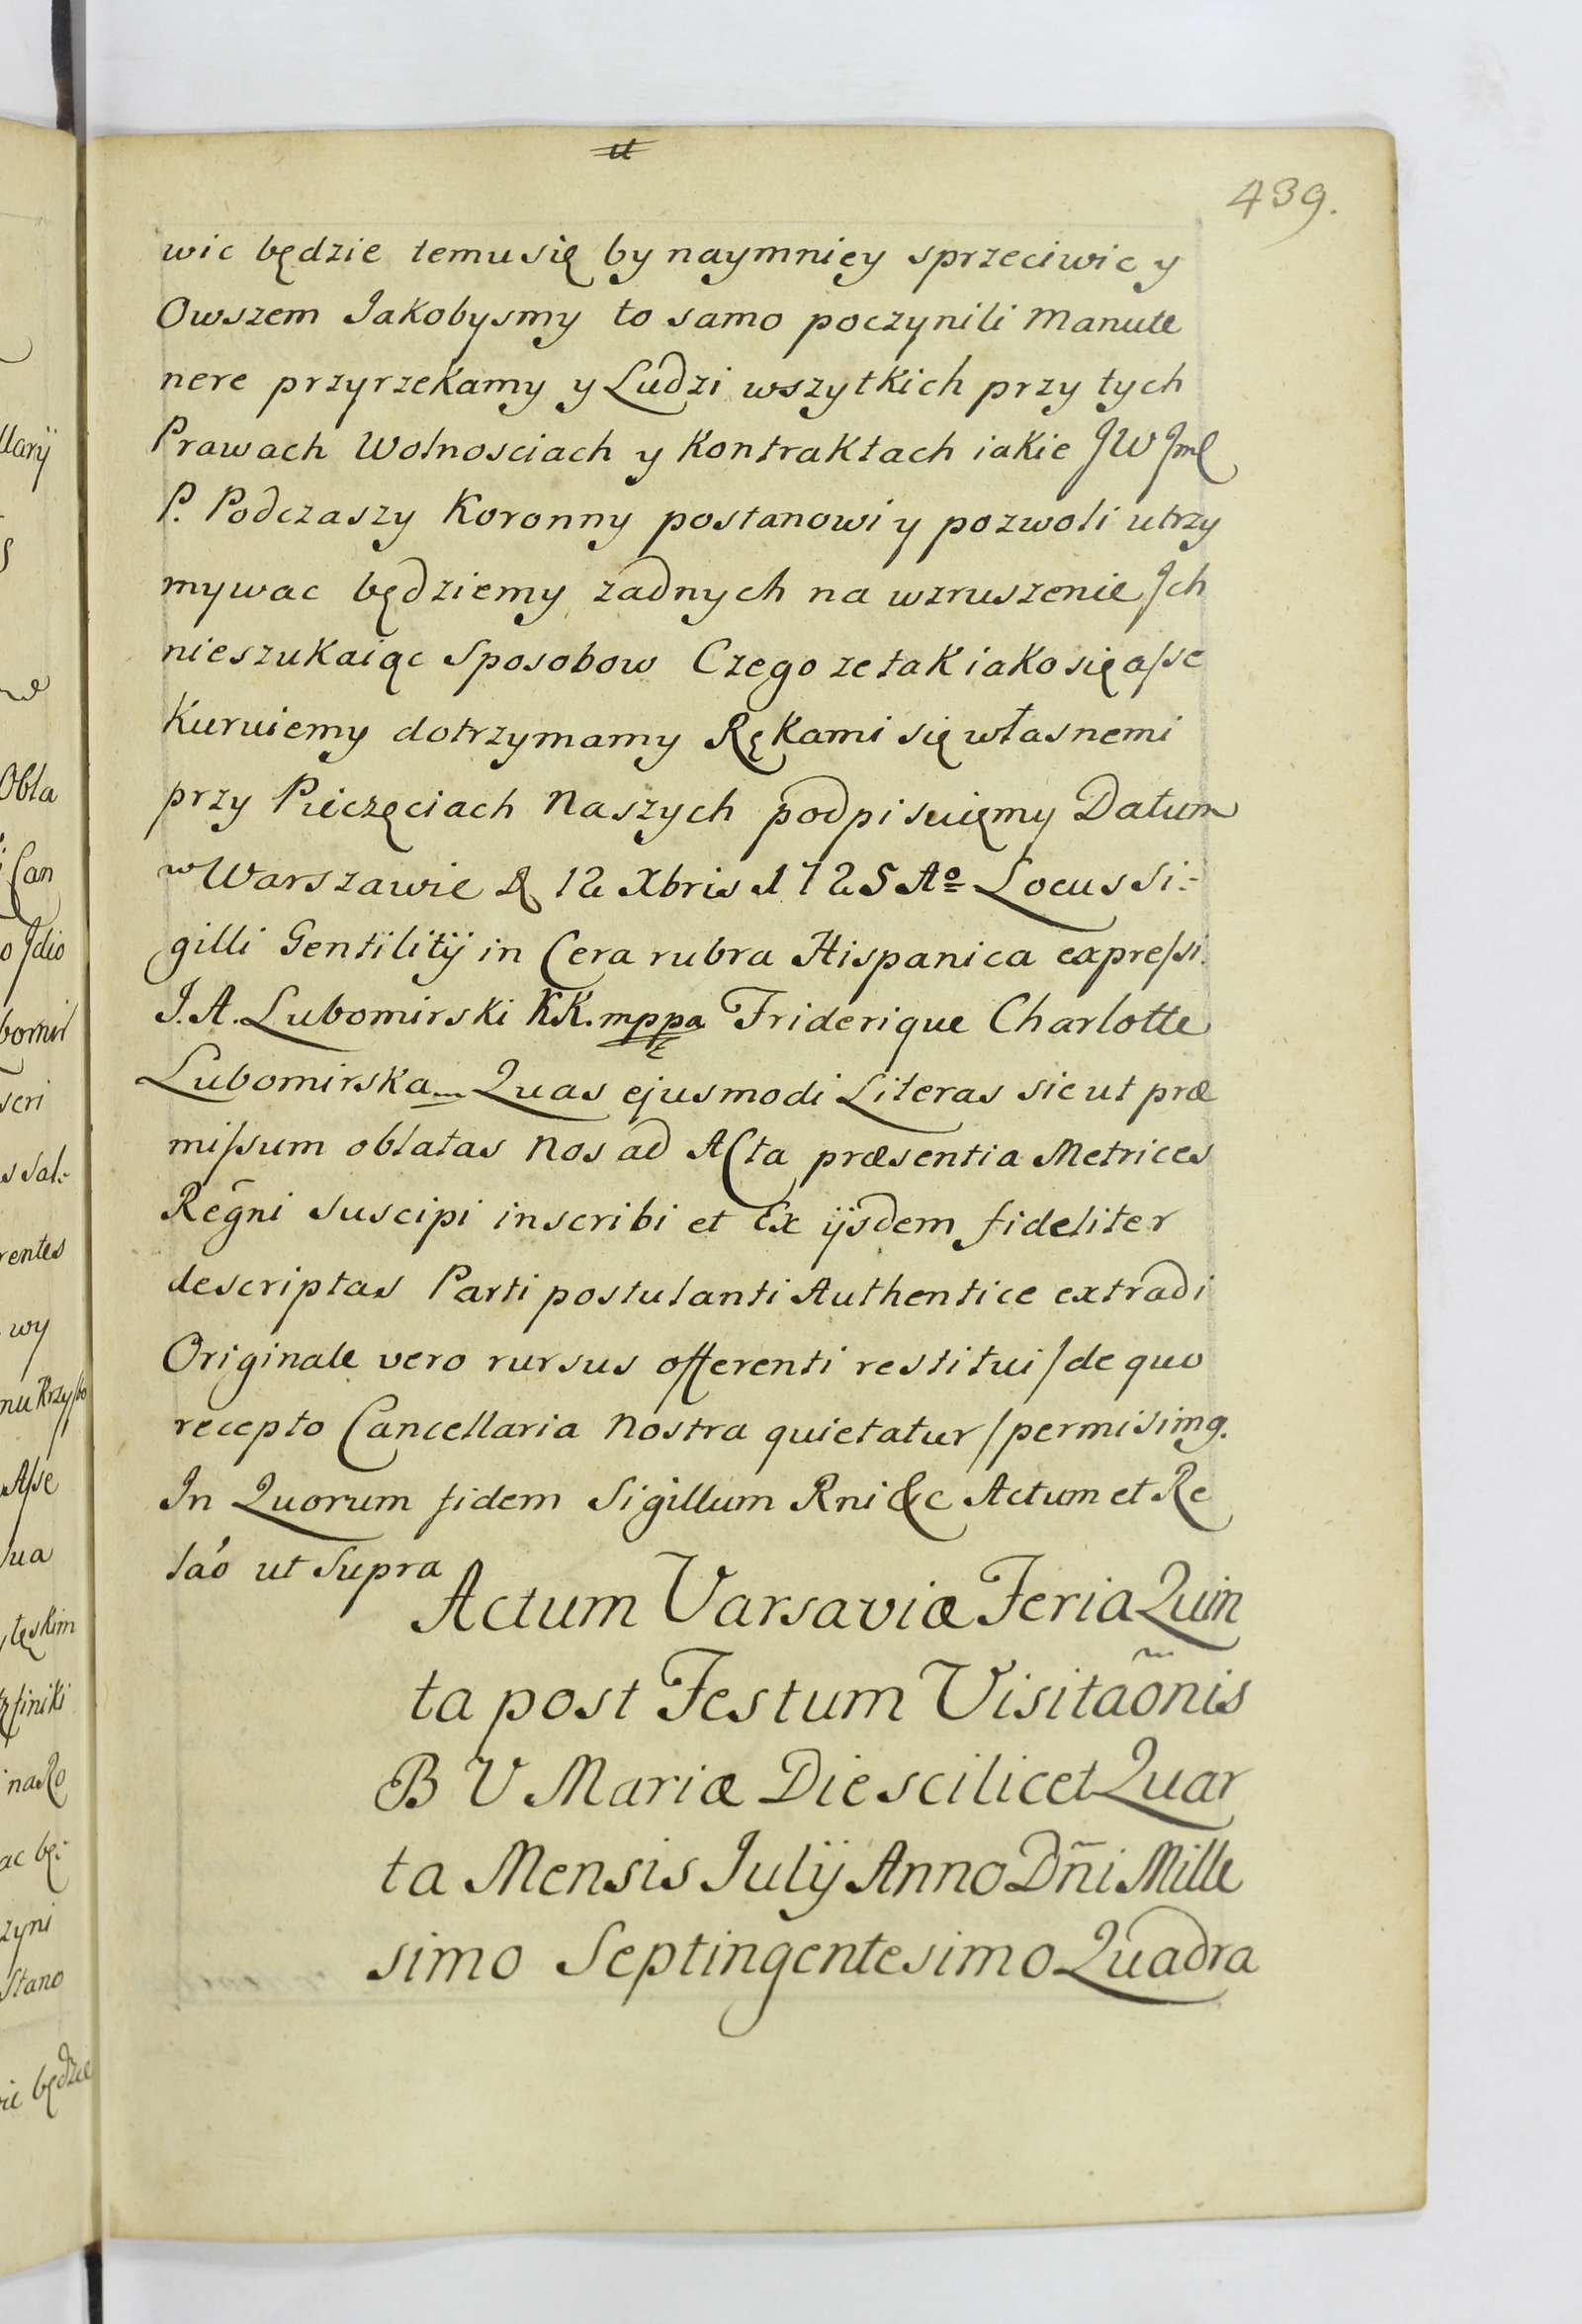 ut
439.
wic będzie temu się by naymniey sprzeciwic y
Owszem Jakobysmy to samo poczynili manute
nere przyrzekamy y Ludzi wszytkich przy tych
Prawach Wolnosciach y Kontraktach iakie JW Jmć
P. Podczaszy Koronny postanowi y pozwoli utrzy
mywac będziemy zadnych na wzruszenie Jch
nieszukaiąc Sposobow Czego ze tak iako się asse
kuruiemy dotrzymamy Rękami się własnemi
przy Pieczęciach Naszych podpisuięmy Datum
w Warszawie D 12 Xbris 1725 Aº Locus Si:
gilli Gentilitÿ in Cera rubra Hispanica expressi.
J. A. Lubomirski KK. mppa Friderique Charlotte
Lubomirska Quas ejusmodi Literas sic ut præ
missum oblatas Nos ad Acta præsentia Metrices
Regñi suscipi inscribi et Ex ÿsdem fideliter
descriptas Parti postulanti Authentice extradi
Originale vero rursus offerenti restitui / de quo
recepto Cancellaria Nostra quietatur / permisimq.
In Quorum fidem Sigillum Rni &c Actum et Re
lao ut Supra
Actum Varsaviæ Feria Quin
ta post Festum Visitaõnis
B V Mariæ Die scilicet Quar
ta Mensis Julÿ Anno Dñi Mille
simo Septingentesimo Quadra
llarÿ
Obla
Can
o Jdio
bomir
scri
s Sal:
rentes
wy
nu Krzysto
Asse
ua
na Ro
ac bę:
zyni
Stano
będzie